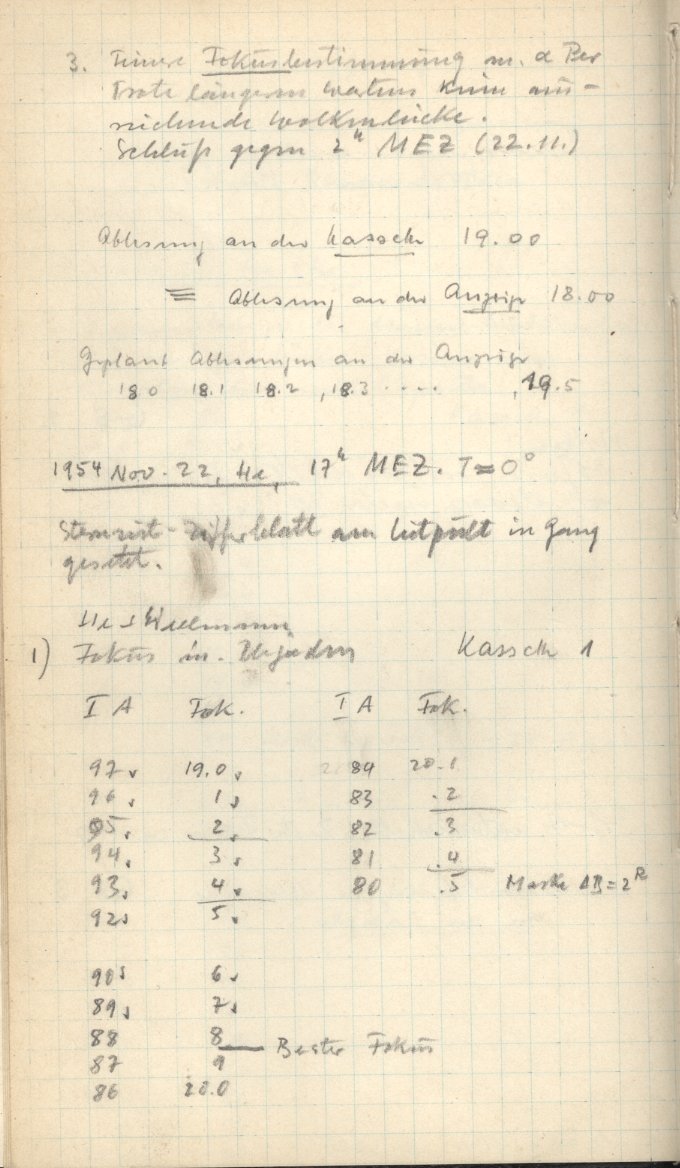 3. Feinere Fokusbestimmung m. α Per
Trotz längerem Warten keine aus-
reichende Wolkenlücke.
Schluß gegen 2h MEZ (22.11.)
Ablesung an der Kassette 19.00
≡ Ablesung an der Anzeige 18.00
Geplant Ablesungen an der Anzeige
18.0 18.1 18.2, 18.3 .... , 19.5
1954 Nov. 22, He, 17h MEZ. T=0°
Sternzeit-Zifferblatt am Leitpult in Gang
gesetzt.
He + Wellmann
1) Fokus in Plejaden Kassette 1
I A Fok. I A Fok.
97 19.0 84 20.1
96 1 83 .2
95 2 82 .3
94 3 81 .4
93 4 80 .5 Marke = 2
92 5
90 6
89 7
88 8 — Bester Fokus
87 9
86 20.0